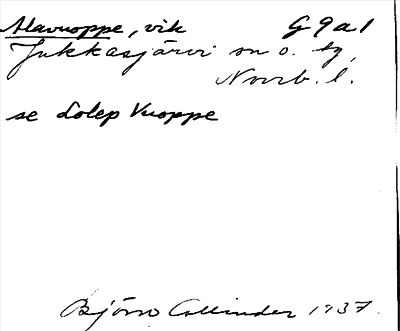 Alavuoppe, vik G9a1
Jukkasjärvi sn o. tg,
Norrb. l.
se Lolep Vuoppe
Björn Collinder 1937.